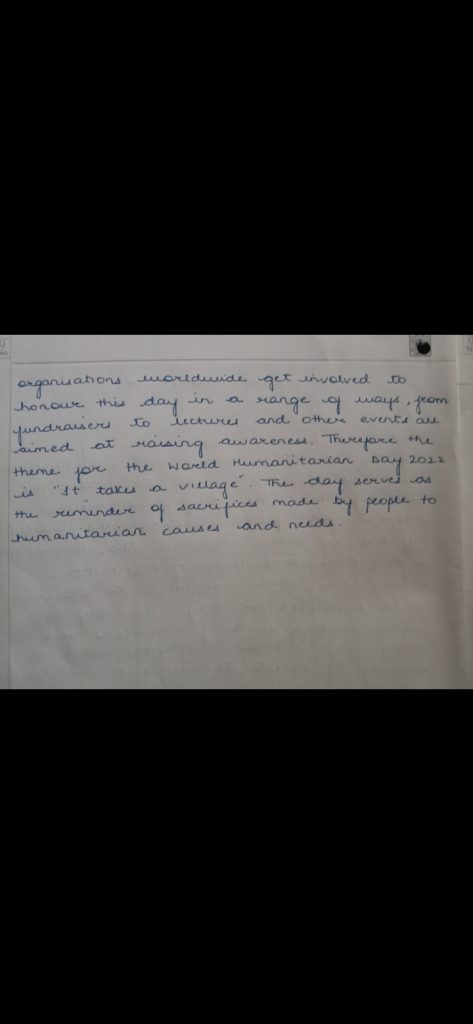 organisations worldwide get involved to
honour this day in a range of ways, from
fundraisers to lectures and other events all
aimed at raising awareness. Therefore the
theme for the World Humanitarian Day 2022
is "It takes a village". The day serves as
the reminder of sacrifices made by people to
humanitarian causes and needs.